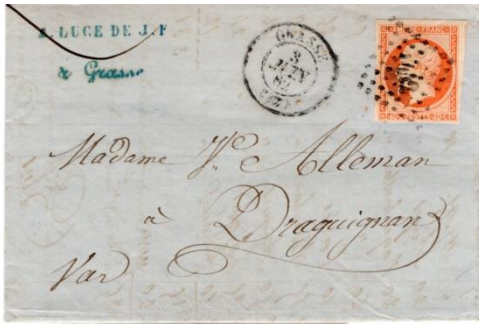 LUCE DE J.F
à Grasse
GRASSE
3
JUIN
Madame Ve Alleman
à
Draguignan
Var